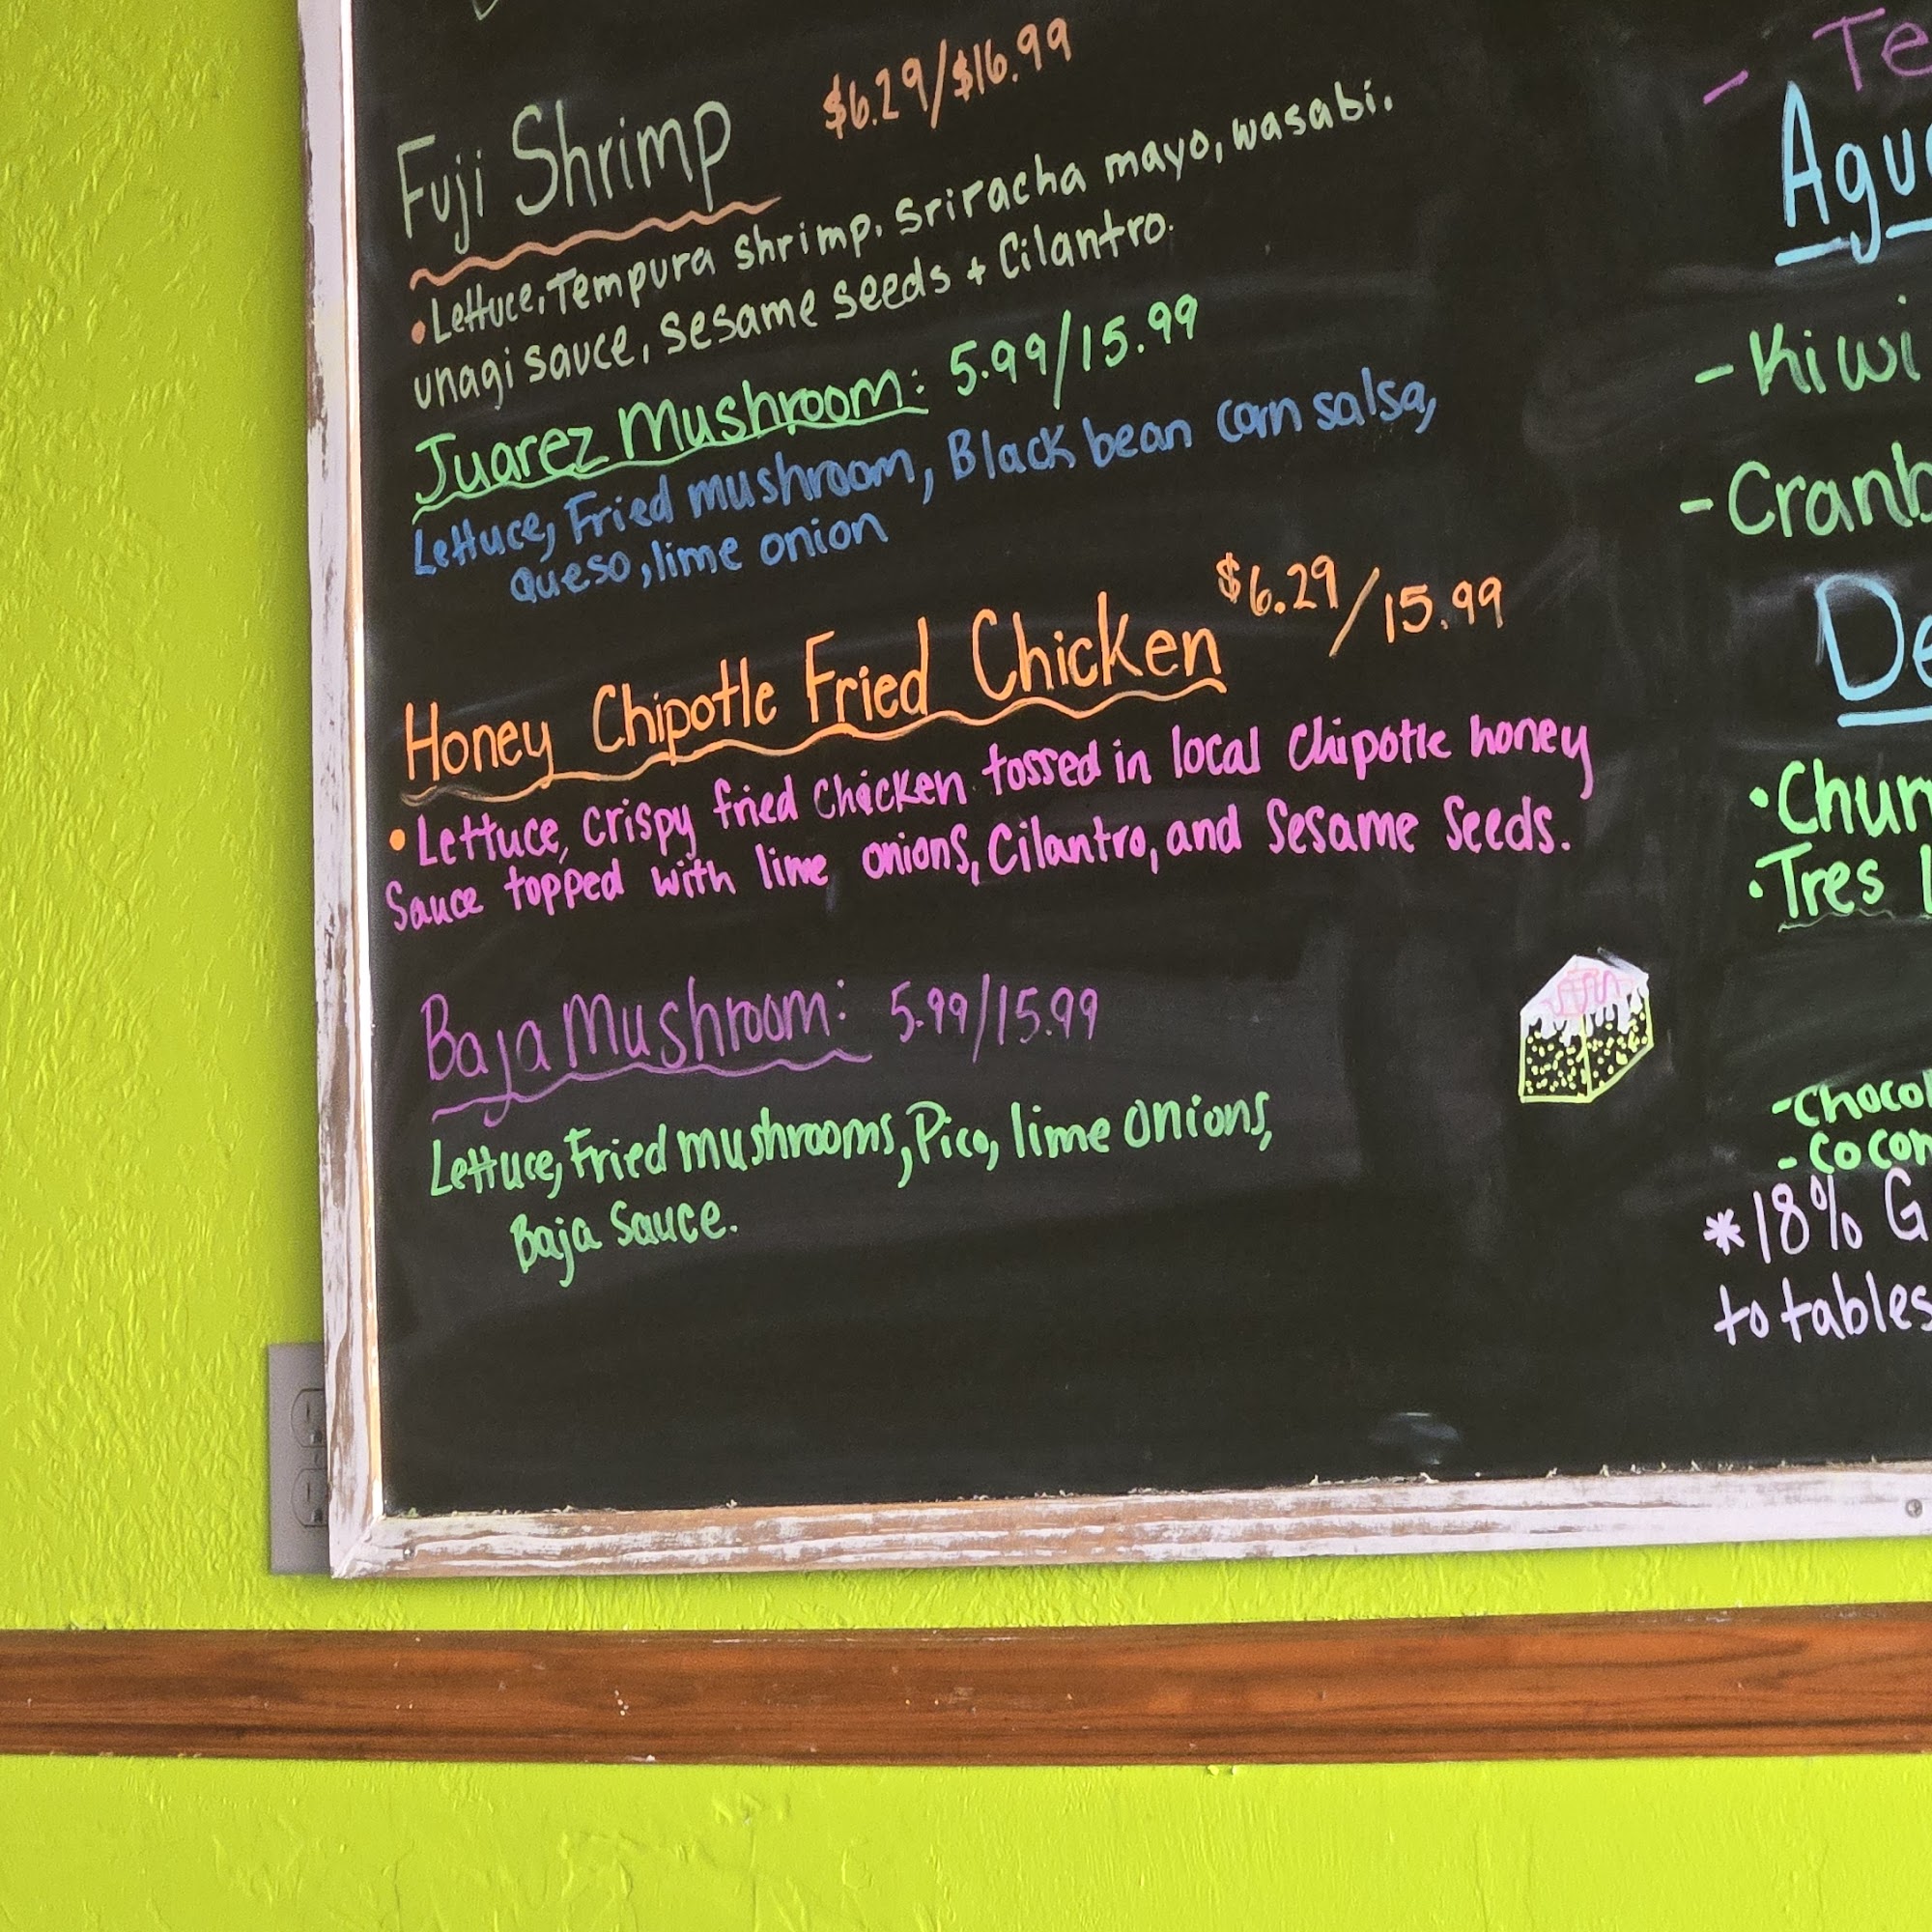 Fuji Shrimp $6.29/$16.99
• Lettuce, Tempura shrimp, sriracha mayo, wasabi.
unagi sauce, sesame seeds + Cilantro.
Juarez Mushroom: 5.99/15.99
Lettuce, Fried mushroom, Black bean corn salsa,
queso, lime onion
Honey Chipotle Fried Chicken $6.29/15.99
• Lettuce, crispy fried chicken tossed in local chipotle honey
Sauce topped with lime onions, Cilantro, and Sesame Seeds.
Baja Mushroom: 5.99/15.99
Lettuce, Fried mushrooms, Pico, lime onions,
Baja Sauce.
- Kiwi
• Tres
*18%
to tables